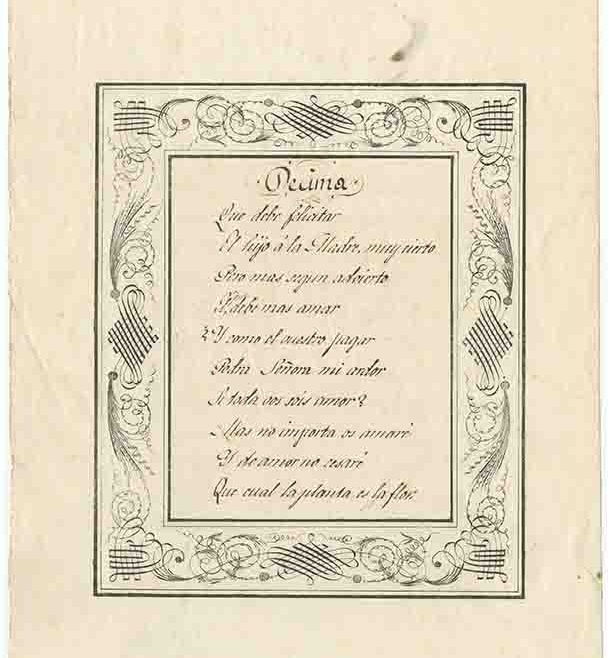 Decima
Que debe felicitar
El hijo á la Madre, muy cierto
Pero mas segun advierto
La debe mas amar
¿Y como el vuestro pagar
Podra Señora mi ardor
Si toda vos sois amor?
Mas no importa os amaré
Y de amor no cesaré
Que cual la planta es la flor.